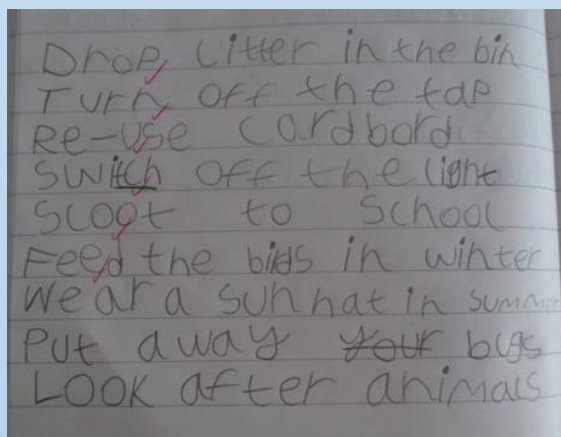 Drop litter in the bin
Turn off the tap
Re-use cardbord
Switch off the light
Scoot to School
Feed the birds in winter
Wear a sun hat in summe
Put away your bugs
LOOK after animals